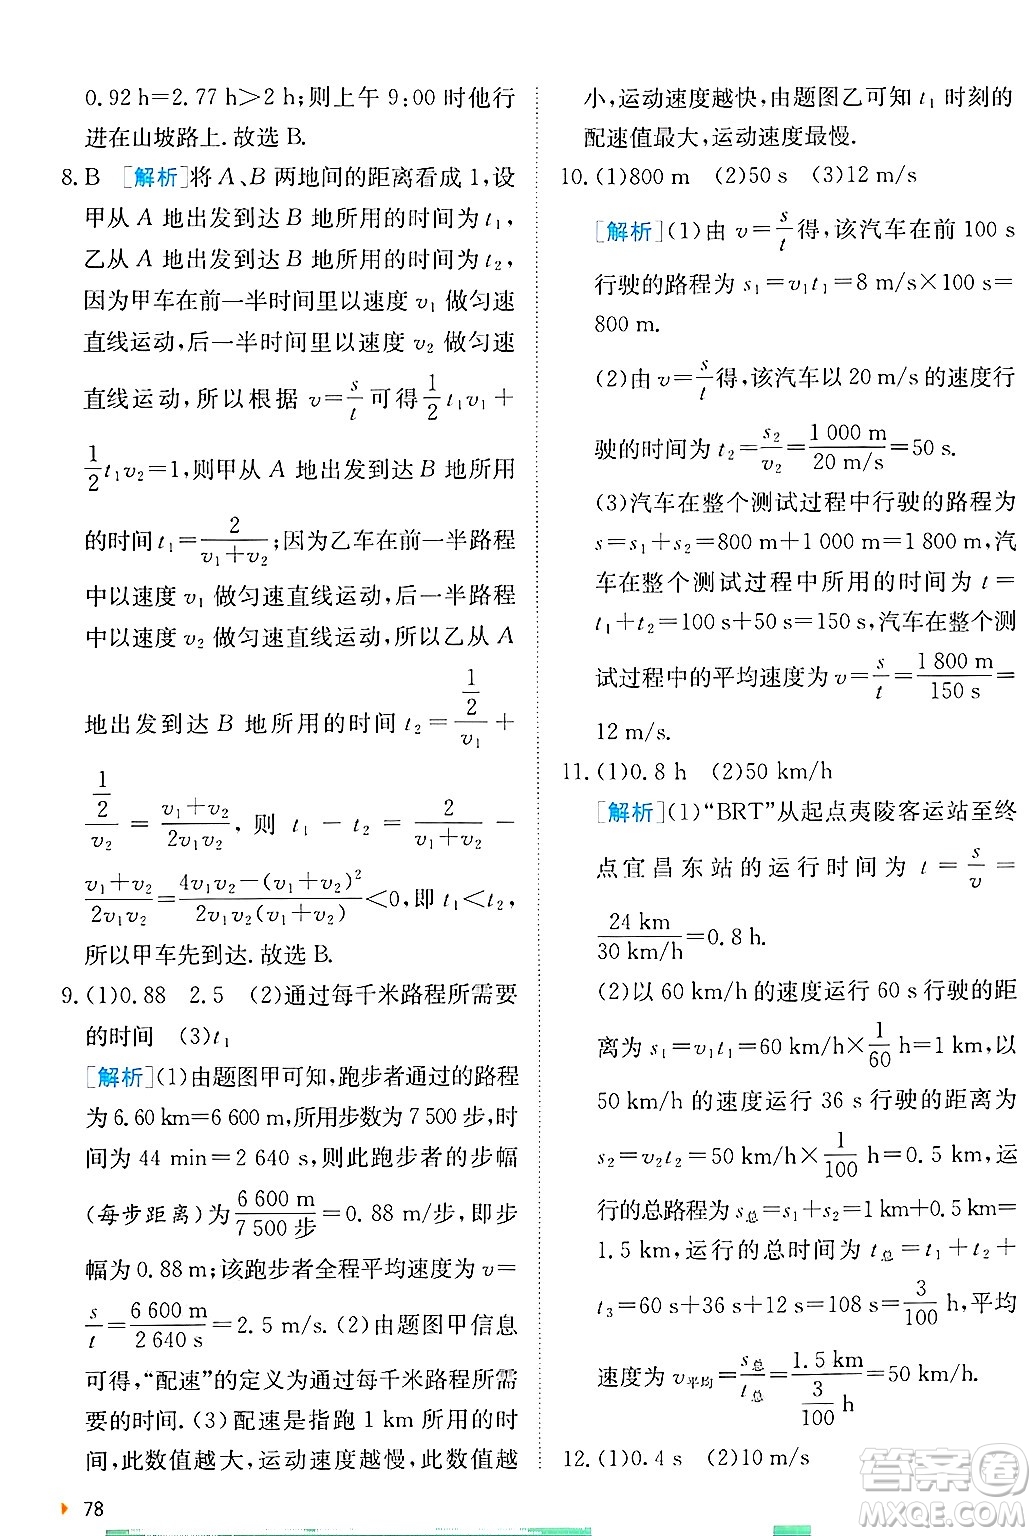 0.92 h=2.77 h>2 h;则上午 9:00 时他行
进在山坡路上.故选 B.
8. B [解析]将 A、B 两地间的距离看成 1,设
甲从 A 地出发到达 B 地所用的时间为 t₁,
乙从 A 地出发到达 B 地所用的时间为 t₂,
因为甲车在前一半时间里以速度 v₁ 做匀速
直线运动,后一半时间里以速度 v₂ 做匀速
直线运动,所以根据 v=s/t可得1/2 t₁v₁+
1/2 t₁v₂=1,则甲从 A 地出发到达 B 地所用
的时间 t₁=2/(v₁+v₂);因为乙车在前一半路程
中以速度 v₁ 做匀速直线运动,后一半路程
中以速度 v₂ 做匀速直线运动,所以乙从 A
地出发到达 B 地所用的时间 t₂=(1/2)/v₁+
(1/2)/v₂=(v₁+v₂)/(2v₁v₂),则 t₁-t₂=2/(v₁+v₂)-
(v₁+v₂)/(2v₁v₂)=(4v₁v₂-(v₁+v₂)²)/(2v₁v₂(v₁+v₂))<0,即 t₁<t₂,
所以甲车先到达.故选 B.
9. (1)0.88 2.5 (2)通过每千米路程所需要
的时间 (3)t₁
[解析](1)由题图甲可知,跑步者通过的路程
为 6.60 km=6 600 m,所用步数为 7 500 步,时
间为 44 min=2 640 s,则此跑步者的步幅
(每步距离)为6 600 m/7 500 步=0.88 m/步,即步
幅为 0.88 m;该跑步者全程平均速度为 v=
s/t=6 600 m/2 640 s=2.5 m/s.(2)由题图甲信息
可得,“配速”的定义为通过每千米路程所需
要的时间.(3)配速是指跑 1 km 所用的时
间,此数值越大,运动速度越慢,此数值越
78
小,运动速度越快,由题图乙可知 t₁ 时刻的
配速值最大,运动速度最慢.
10. (1)800 m (2)50 s (3)12 m/s
[解析](1)由 v=s/t得,该汽车在前 100 s
行驶的路程为 s₁=v₁t₁=8 m/s×100 s=
800 m.
(2)由 v=s/t得,该汽车以 20 m/s 的速度行
驶的时间为 t₂=s₂/v₂=1 000 m/20 m/s=50 s.
(3)汽车在整个测试过程中行驶的路程为
s=s₁+s₂=800 m+1 000 m=1 800 m,汽
车在整个测试过程中所用的时间为 t=
t₁+t₂=100 s+50 s=150 s,汽车在整个测
试过程中的平均速度为 v=s/t=1 800 m/150 s=
12 m/s.
11. (1)0.8 h (2)50 km/h
[解析](1)“BRT”从起点夷陵客运站至终
点宜昌东站的运行时间为 t=s/v=
24 km/30 km/h=0.8 h.
(2)以 60 km/h 的速度运行 60 s 行驶的距
离为 s₁=v₁t₁=60 km/h×1/60 h=1 km,以
50 km/h 的速度运行 36 s 行驶的距离为
s₂=v₂t₂=50 km/h×1/100 h=0.5 km,运
行的总路程为 s总=s₁+s₂=1 km+0.5 km=
1.5 km,运行的总时间为 t总=t₁+t₂+
t₃=60 s+36 s+12 s=108 s=3/100 h,平均
速度为 v平均=s总/t总=1.5 km/(3/100 h)=50 km/h.
12. (1)0.4 s (2)10 m/s
答案圈
MXQE.COM